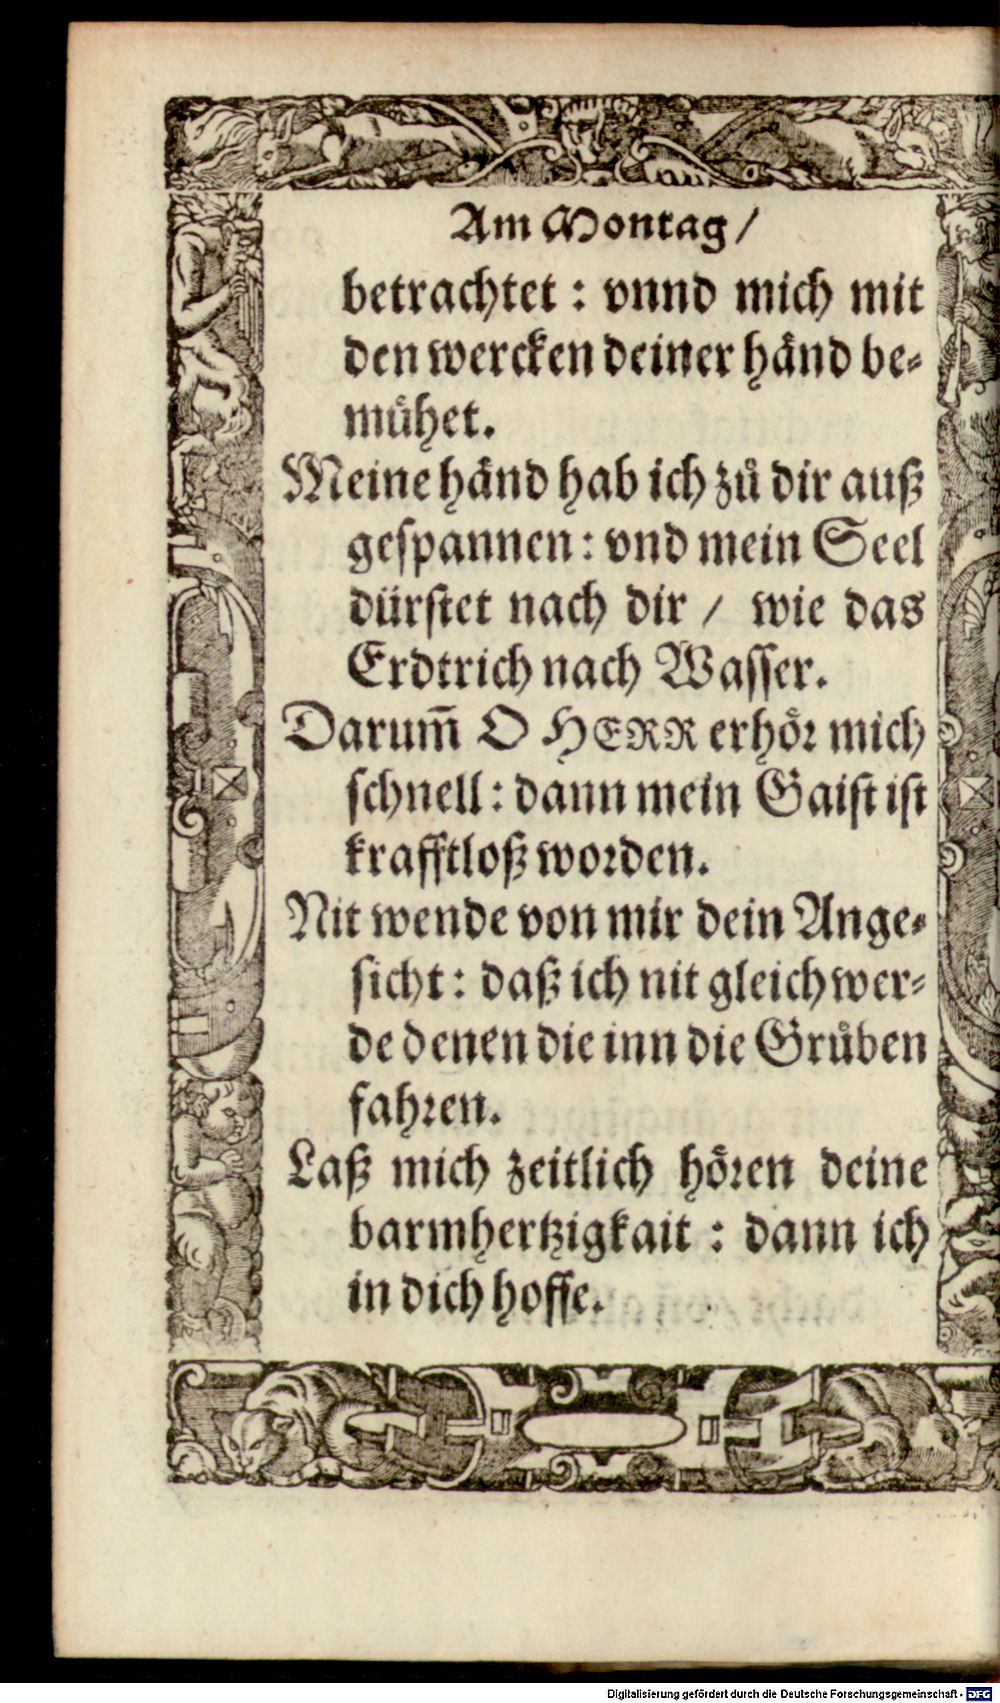 Am Montag /
betrachtet : vnnd mich mit
den wercken deiner hånd be⸗
můhet.
Meine hånd hab ich zů dir auß
gespannen : vnd mein Seel
dürstet nach dir / wie das
Erdtrich nach Wasser.
Darum̃ O HERR erhör mich
schnell : dann mein Gaist ist
krafftloß worden.
Nit wende von mir dein Ange⸗
sicht : daß ich nit gleich wer⸗
de denen die inn die Grůben
fahren.
Laß mich zeitlich hören deine
barmhertzigkait : dann ich
in dich hoffe.
Digitalisierung gefördert durch die Deutsche Forschungsgemeinschaft - DFG